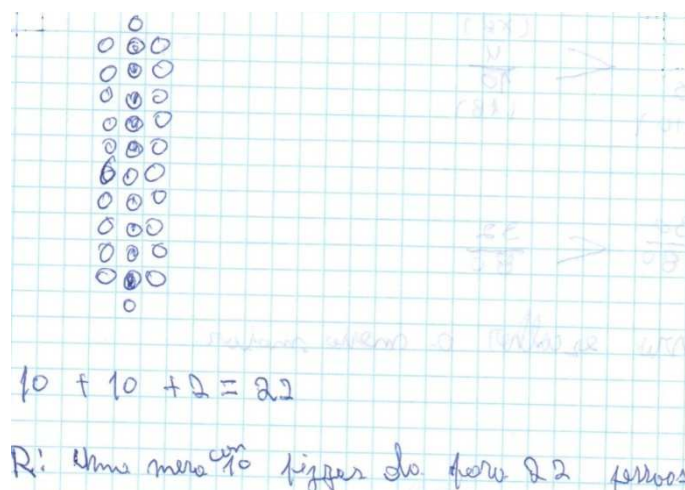 10 + 10 + 2 = 22
R: Uma mesa com 10 pizzas da para 22 pessoas